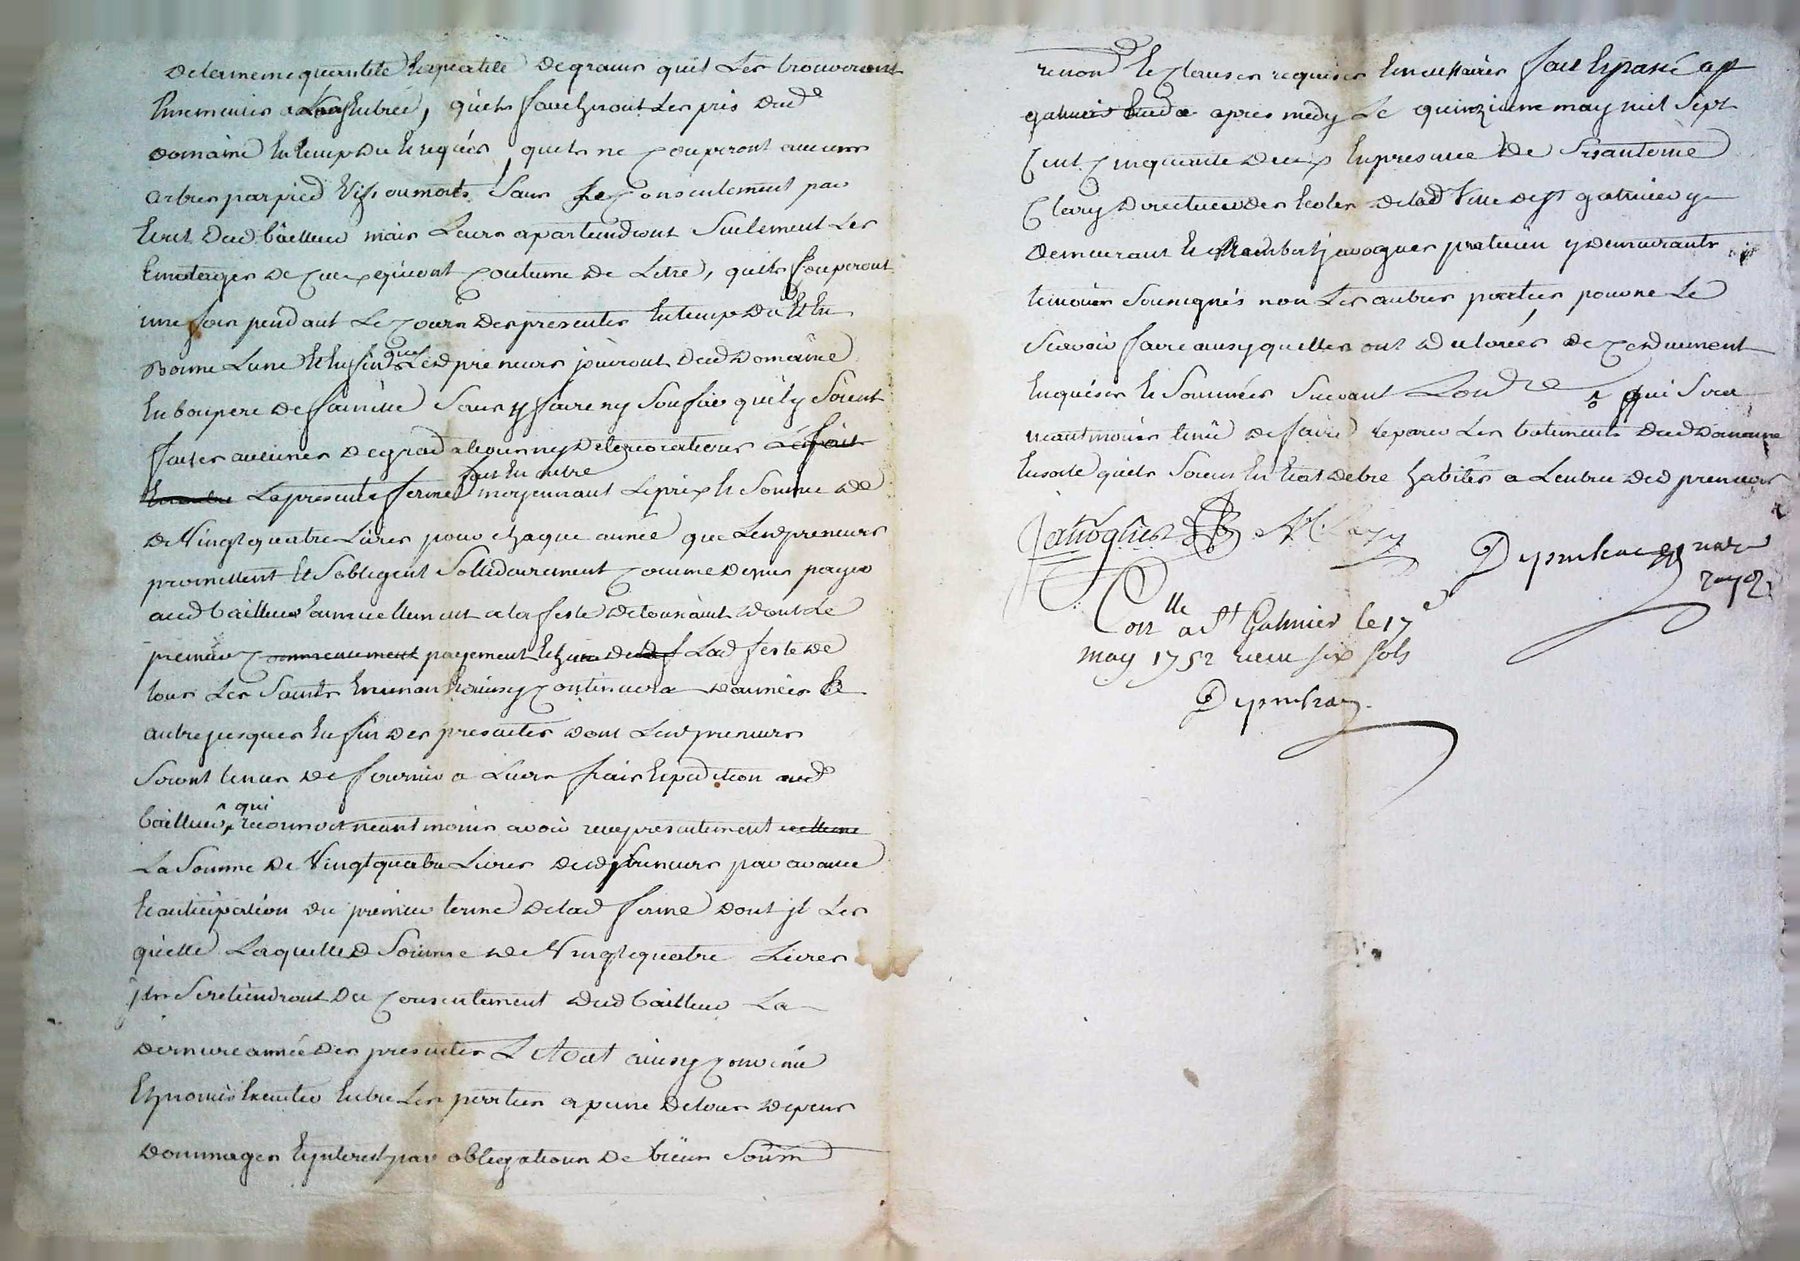 de la meme quantité et qualité de grains quil les trouveront
ensemencés a leur entrée, quils faucheront les prés dud
domaine en temps du et requis, quils ne couperont aucuns
arbres par pied vifs ou morts sans le consentement par
ecrit dud bailleur mais leurs apartiendront seulement les
emotages de ceux qui ont coutume de letre, quils couperont
une fois pendant le cours des presentes en temps du et en
bonne lune et enfin que lesd preneurs jouiront dud domaine
en bon pere de famille sans y faire ny soufrir quil y soient
faites aucunes degradations ny deteriorations
la presente ferme fait en outre moyennant le prix et somme de
de vingt quatre livres pour chaque année que lesd preneurs
promettent et sobligent sollidairement comme devant payer
aud bailleur annuellement a la feste de toussaint dont le
premier commencement payement a lad feste de
tous les saints et ainsy continuera dannées en
autre jusques en fin des presentes dont lesd preneurs
seront tenus de fournir a leurs frais expedition aud
bailleur, qui reconnoit neantmoins avoir reçu presentement
la somme de vingt quatre livres desd preneurs par avance
et anticipation du premier terme de lad ferme dont il les
quitte laquelle d somme de vingt quatre livres
ils se retiendront du consentement dud bailleur la
derniere année des presentes le tout ainsy convenu
et promis executer entre les parties a peine de tous depens
dommages et interest par obligations de biens soum
renon et clauses requises et necessaires fait et passé a st
galmier apres midy le quinzieme may mil sept
cent cinquante deux en presence de sr antoine
Clary directeur des ecoles de lad ville de st galmier y
demeurant et Rambert javogues praticien y demeurant
temoins sousignés non les autres parties pour ne le
scavoir faire ainsy quelles ont declarées de ce duement
enquises et sommées suivant Lordre qui sera
neantmoins tenu de faire reparer les batiments dud Domaine
en sorte quils soient en etat detre habités a lentrée desd preneurs
Javogues A. Clary
Depinhac
Conlle a st Galmier le 17e
may 1752 reçu six sols
Depinhac